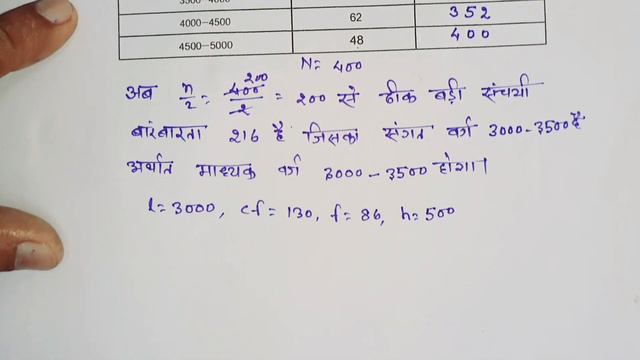 4000–4500 62 352
4500–5000 48 400
N = 400
अब n/2 = 400/2 200 = 200 से ठीक बड़ी संचयी
बारंबारता 216 है जिसका संगत वर्ग 3000-3500 है
अर्थात माध्यक वर्ग 3000-3500 होगा।
l = 3000, cf = 130, f = 86, h = 500